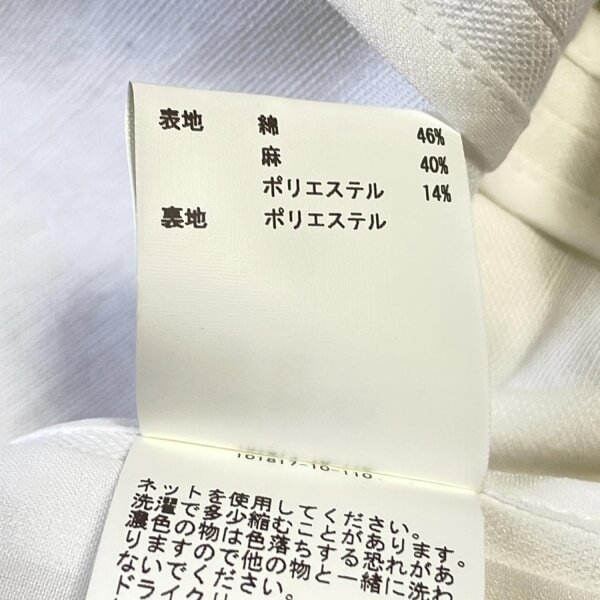 表地 綿 46%
麻 40%
ポリエステル 14%
裏地 ポリエステル
101817-10-110
ネットを使用してください。
洗濯で多少縮むことがあります。
濃色の物は色落ちする恐れがあ
りますので他の物と一緒に洗わ
ないでください。
ドライクリ